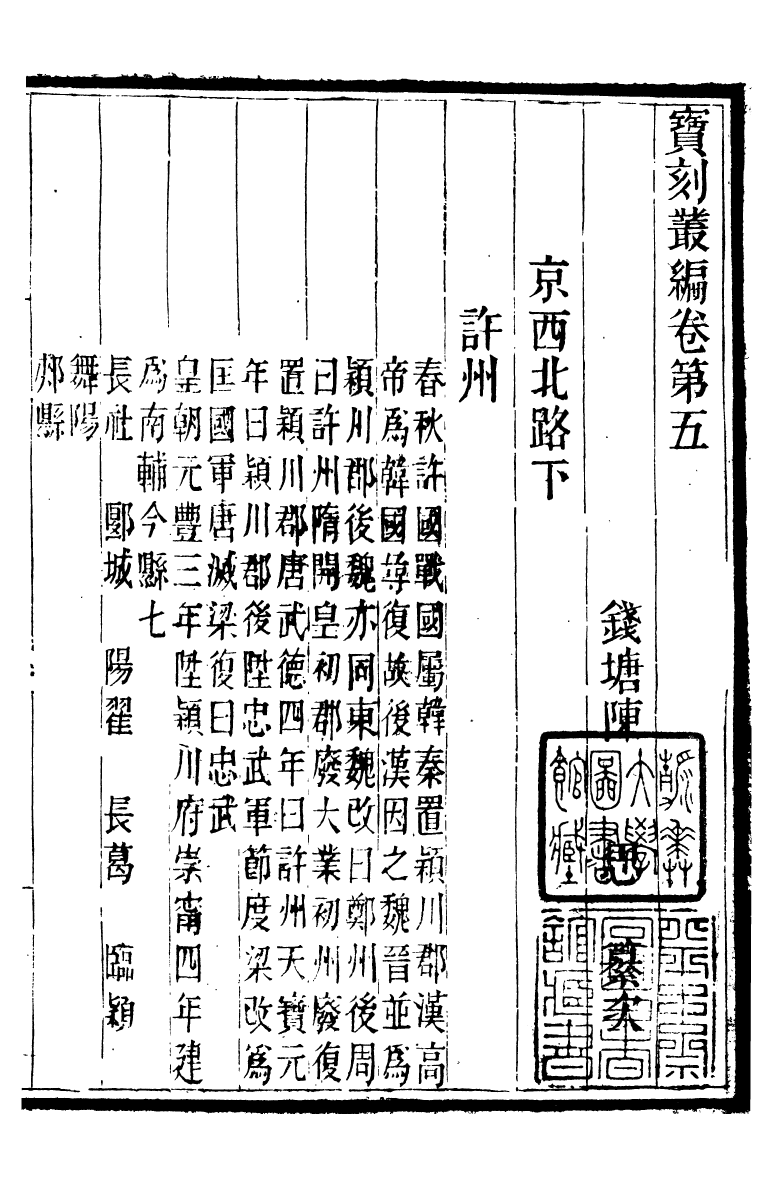 寶刻叢編卷第五
錢塘陳思纂次
京西北路下
許州
春秋許國戰國屬韓秦置潁川郡漢高
帝爲韓國尋復故後漢因之魏晉並爲
潁川郡後魏亦同東魏改曰鄭州後周
曰許州隋開皇初郡廢大業初州廢復
置潁川郡唐武德四年曰許州天寶元
年曰潁川郡後陞忠武軍節度梁改爲
匡國軍唐滅梁復曰忠武
皇朝元豐三年陞潁川府崇甯四年建
爲南輔今縣七
長社 郾城 陽翟 長葛 臨潁
舞陽
郟縣
大學
圖書
館藏